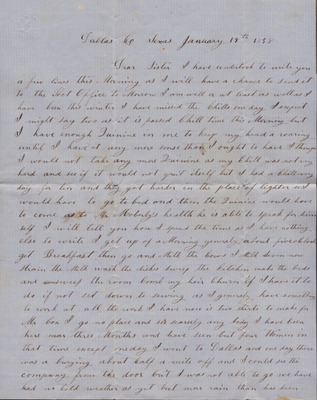 Dallas Co Texas January 19th 1858
Dear Sister I have undertook to write you
a few lines this Morning as I will have a chance to send it
to the Post Office to Morrow I am well or at least as well as I
have been this winter I have missed the Chills one day I expect
I might say two as it is passed Chill time this Morning but
I have enough Quinine in me to keep my head a roaring
until I have it any more sense than I ought to have I thought
I would not take any more Quinine as my Chill was not very
hard and see if it would not quit itself but I had a chill every
day for two and they got harder in the place of lighter and
would have to go to bed and then the Quinine would have
to come as to Mr health he is able to speak for him
self I will tell you how I spend the time as I have nothing
else to write I get up of a Morning generaly about five oclock
get Breakfast then go and Milk the Cows I Milk seven now
Strain the Milk wash the dishes sweep the kitchen make the beds
and sweep the room comb my hair churn if I have it to
do if not set down to sewing as I generaly have something
to work at all the work I have now is two shirts to make for
Mr Cox I go no place and see scarcely any body I have been
here near three Months and have seen but four Women in
that time except one day I went to Dallas and one day there
was a burying about half a mile off and I could see the
company from the door but I was not able to go we have
had no cold weather as yet but more rain than has been